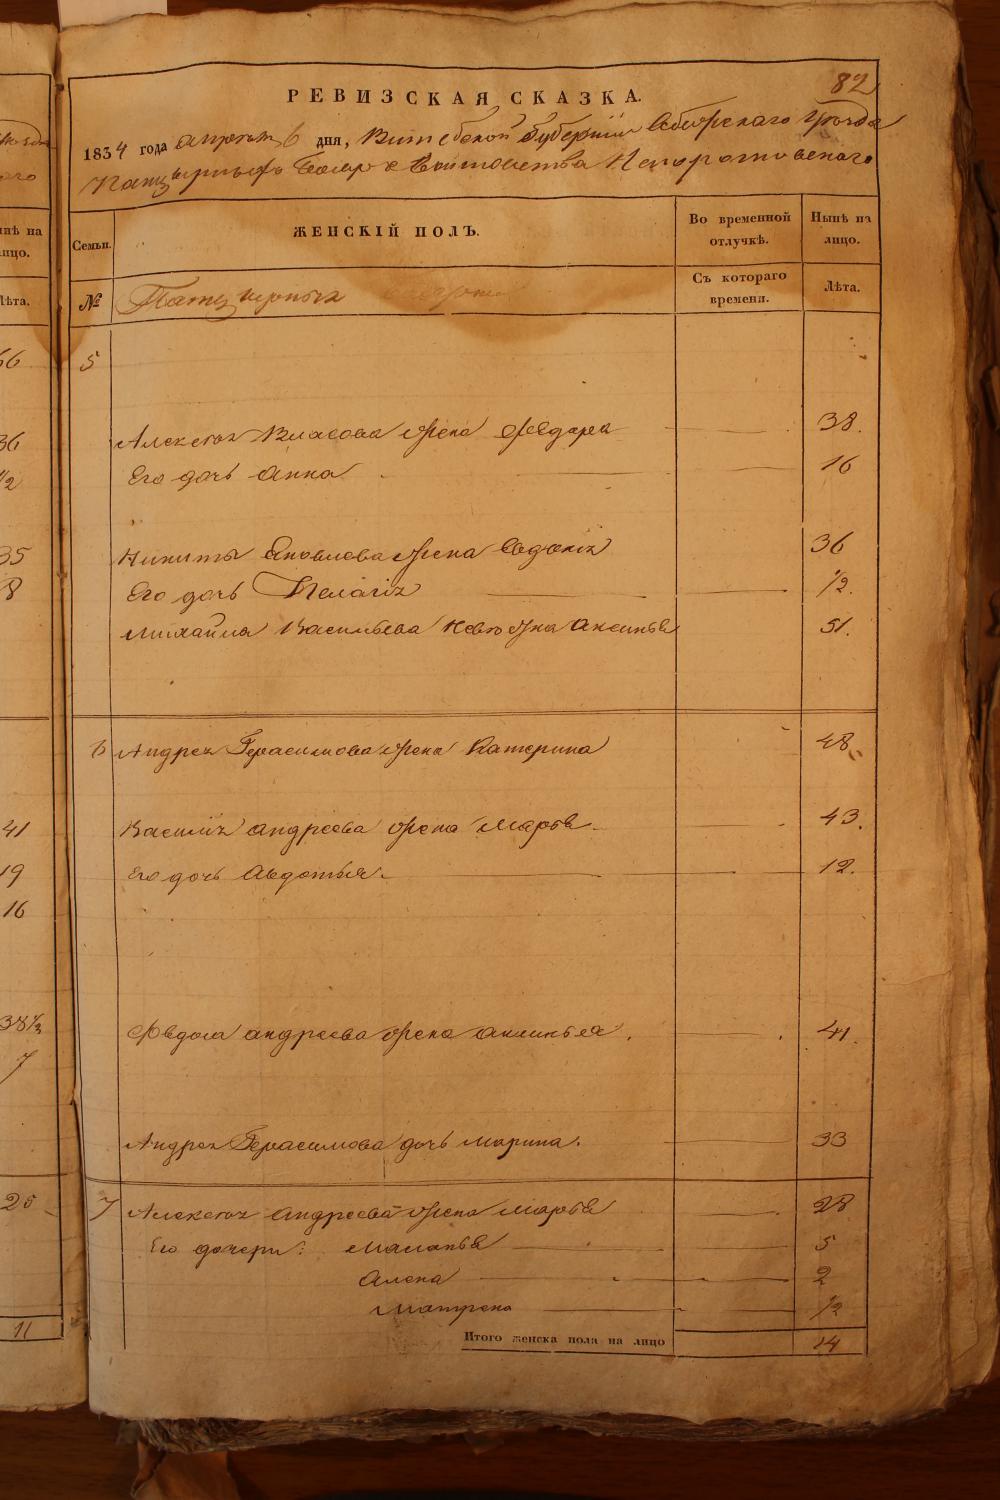 82
РЕВИЗСКАЯ СКАЗКА.
1834 года апреля 6 дня, Витебской Губернии Себежскаго уѣзда
Панцырныхъ бояръ Войтовства Непоротовскаго
Семьи.
ЖЕНСКІЙ ПОЛЪ.
Во временной отлучкѣ.
Нынѣ на лицо.
№
Панцырныхъ
Съ котораго времени.
Лѣта.
5
Алексѣя Власова жена Ѳедора 38.
Его дочь Анна 16
Никиты Яковлева жена Евдокія 36
Его дочь Пелагія 1/2.
Михайла Васильева жена Аксинья 51.
6 Андрея Герасимова жена Катерина 48
Василія Андреева жена Марья 43.
Его дочь Авдотья 12.
Андреева жена Аксинья 41.
Андрея Герасимова дочь Марина. 33
7 Алексѣя Андреева жена Марья 28
Его дочери: Маланья 5
Алена 2
Матрена 1/2
Итого женска пола на лицо 14
нынѣ на
лицо.
Лѣта.
66
36
1/2
35
8
41
19
16
38 1/2
7
25
11